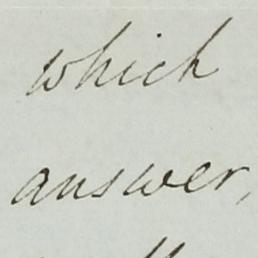 which
answer,